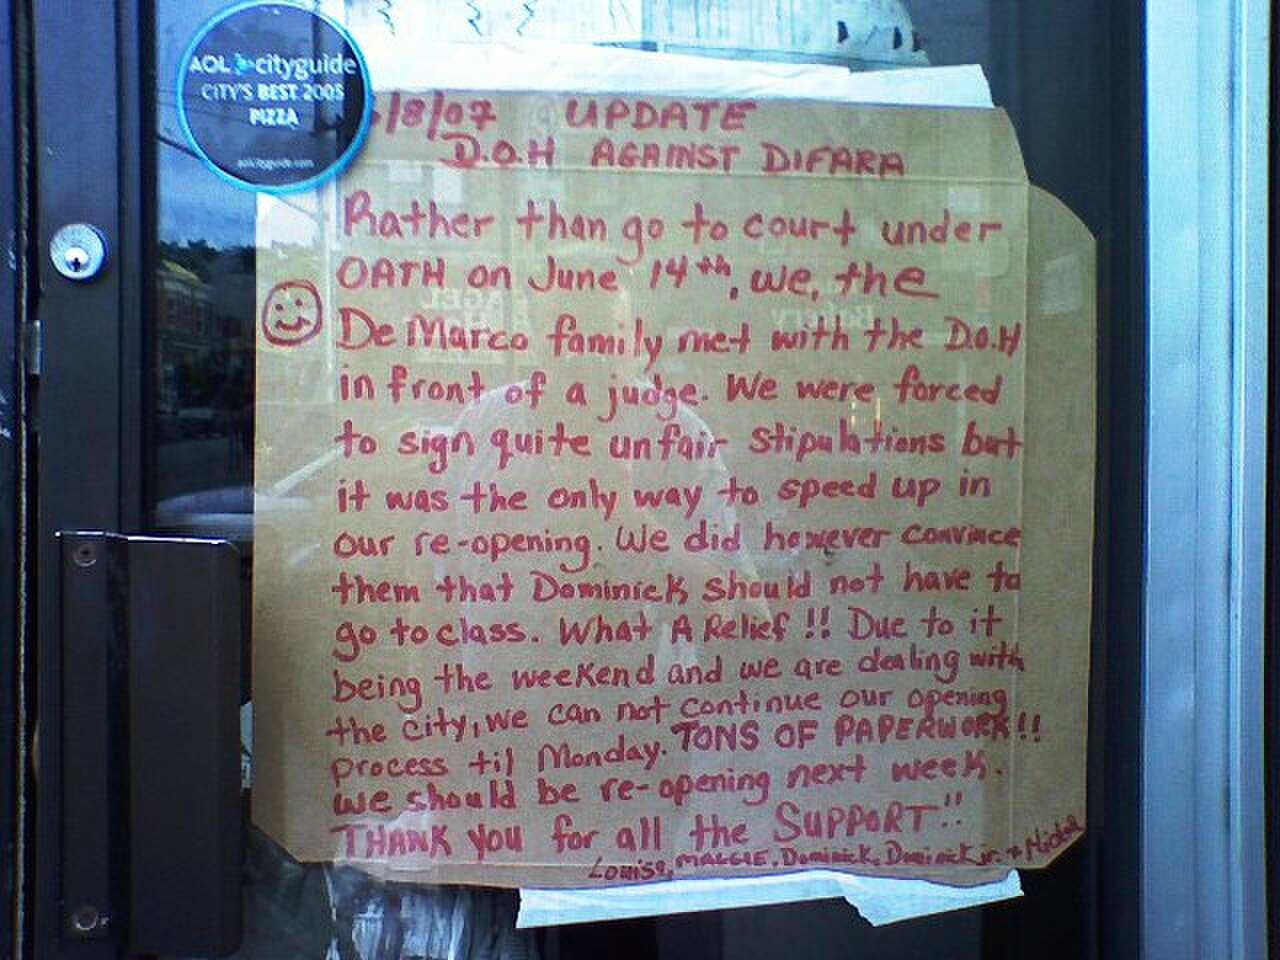 AOL cityguide
CITY'S BEST 2005
PIZZA
aolcityguide.com
/8/07 UPDATE
D.O.H AGAINST DIFARA
Rather than go to court under
OATH on June 14th, we, the
DeMarco family met with the D.O.H
in front of a judge. We were forced
to sign quite unfair stipulations but
it was the only way to speed up in
our re-opening. We did however convince
them that Dominick should not have to
go to class. What A Relief !! Due to it
being the weekend and we are dealing with
the city, we can not continue our opening
process til Monday. TONS OF PAPERWORK!!
We should be re-opening next week.
THANK YOU for all the SUPPORT!!
Louise, MAGGIE, Dominick, Dominick jr. +